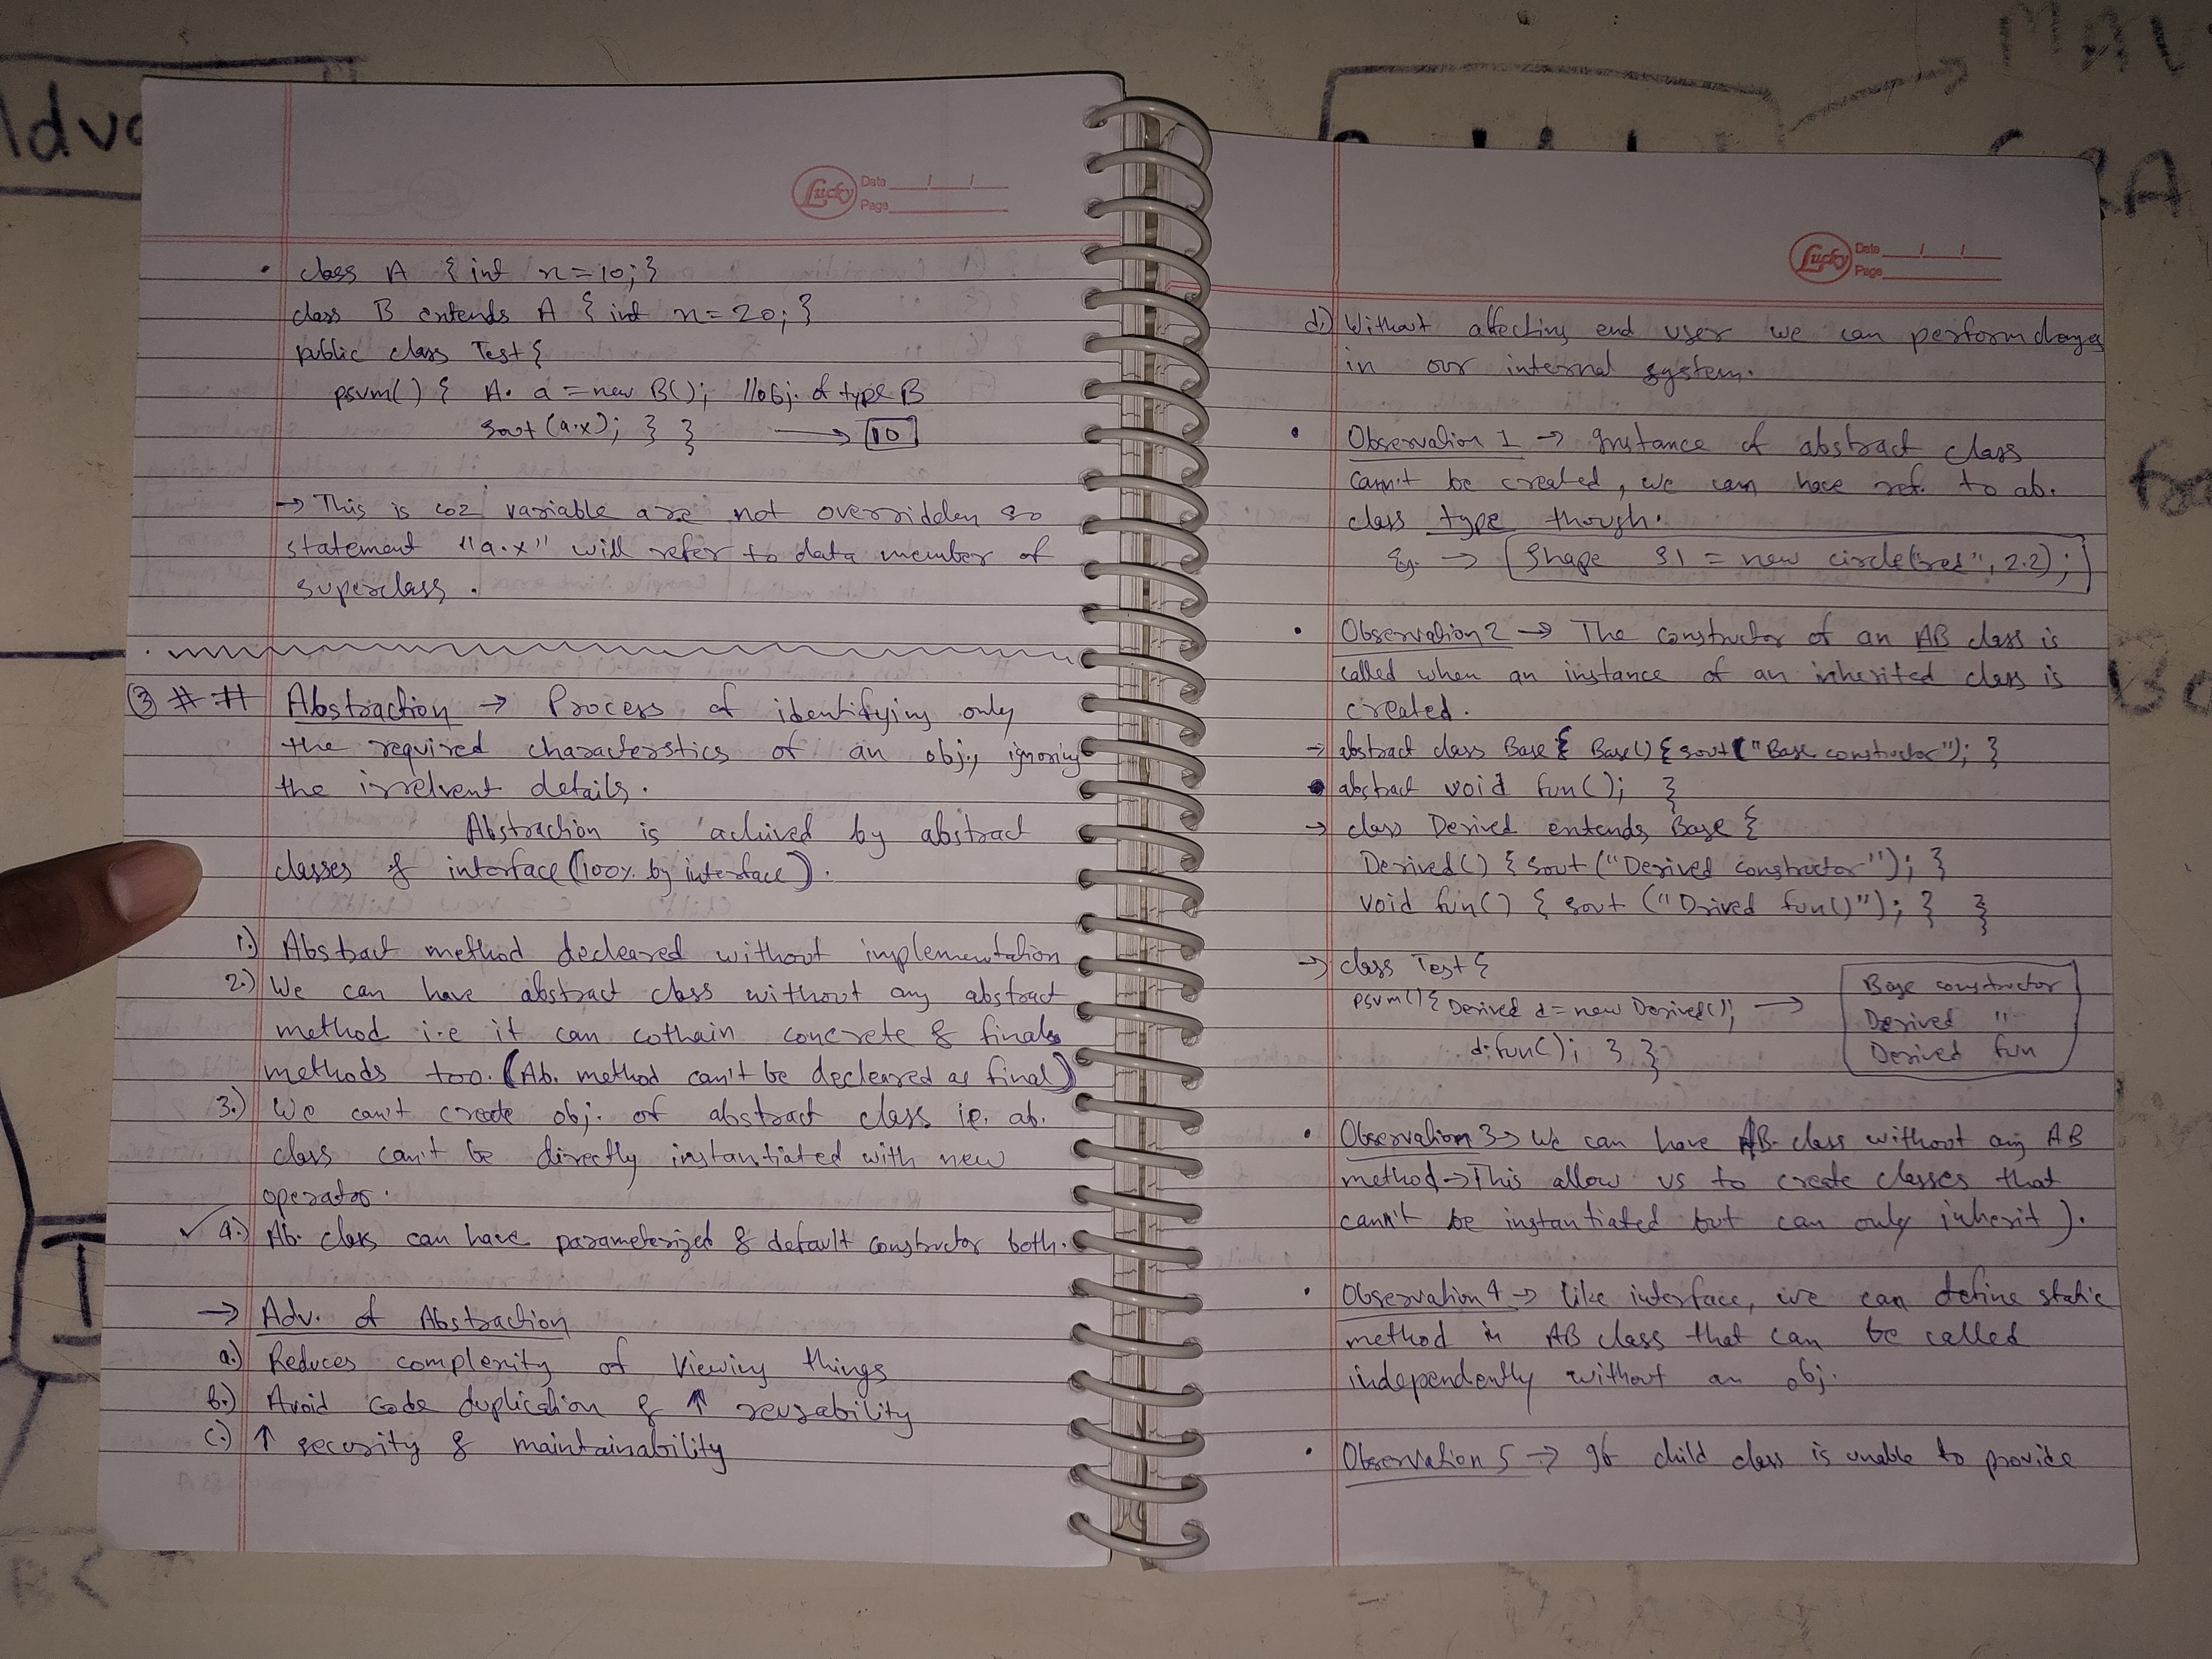 Lucky
Date / /
Page
• class A { int x=10; }
class B extends A { int x=20; }
public class Test {
psvm() { A. a = new B(); // obj. of type B
sout (a.x); } } → 10
→ This is coz variable are not overridden so
statement "a.x" will refer to data member of
superclass.
③ ## Abstraction → Process of identifying only
the required characterstics of an obj., ignoring
the irrelvent details.
Abstraction is achived by abstract
classes & interface (100% by interface).
1.) Abstract method decleared without implementation
2.) We can have abstract class without any abstract
method i.e it can cothain concrete & final
methods too. (Ab. method can't be decleared as final)
3.) We can't create obj. of abstract class ie. ab.
class can't be directly instantiated with new
operator.
✓ 4.) Ab. class can have parameterized & default constructor both.
→ Adv. of Abstraction
a.) Reduces complexity of Viewing things
b.) Avoid Code duplication & ↑ reusability
c.) ↑ security & maintainability
Lucky
Date / /
Page
d.) Without affecting end user we can perform changes
in our internal system.
• Observation 1 → Instance of abstract class
cann't be created, we can have ref. to ab.
class type though.
Eg. → Shape S1 = new circle("red", 2.2);
• Observation 2 → The constructor of an AB class is
called when an instance of an inherited class is
created.
→ abstract class Base { Base() { sout ("Base constructor"); }
• abstract void fun(); }
→ class Derived extends Base {
Derived() { sout ("Derived constructor"); }
void fun() { sout ("Drived fun()"); } }
→ class Test {
psvm() { Derived d = new Derived(); →
d.fun(); } }
Base constructor
Derived "
Derived fun
• Observation 3 → We can have AB. class without any AB
method → This allow us to create classes that
cann't be instantiated but can only inherit ).
• Observation 4 → like interface, we can define static
method in AB class that can be called
independently without an obj.
• Observation 5 → If child class is unable to provide